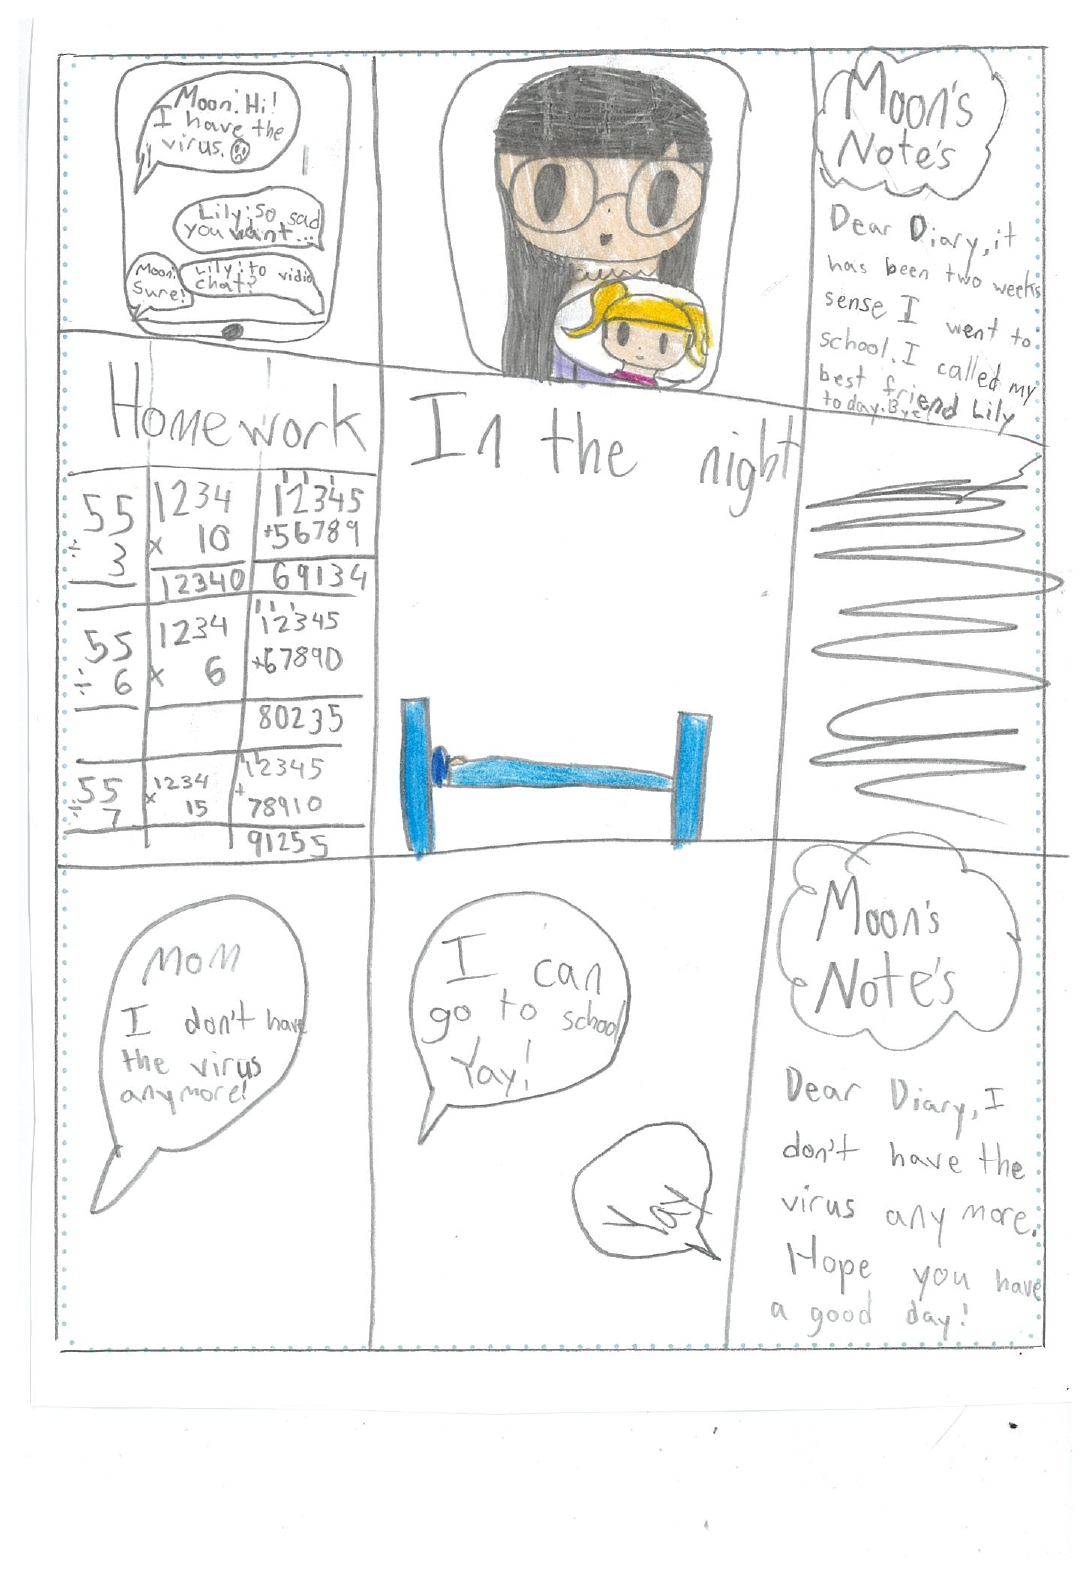 Moon: Hi!
I have the
virus.
Lily: So sad
you want...
Lily: to vidio
chat?
Moon:
Sure!
Moon's
Note's
Dear Diary, it
has been two weeks
sense I went to
school. I called my
best friend Lily
today. Bye!
Homework
55
÷ 3
1234
× 10
12340
111
12345
+56789
69134
55
÷ 6
1234
× 6
111
12345
+67890
80235
55
÷ 7
1234
× 15
11
12345
+
78910
91255
In the night
Mom
I don't have
the virus
anymore!
I can
go to school
Yay!
Yay
Moon's
Note's
Dear Diary, I
don't have the
virus any more.
Hope you have
a good day!